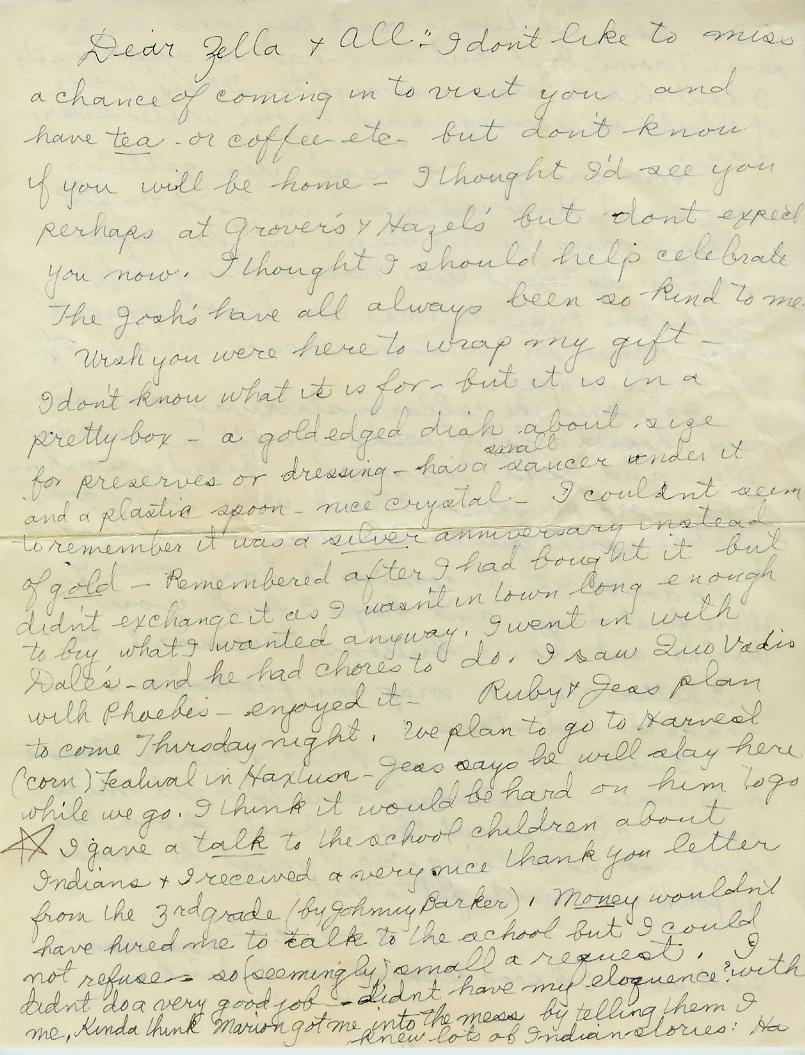 Dear Zella & All:- I don't like to miss
a chance of coming in to visit you and
have tea - or coffee - etc - but don't know
if you will be home - I thought I'd see you
perhaps at Grover's & Hazel's but dont expect
you now. I thought I should help celebrate
The Josh's have all always been so kind to me.
Wish you were here to wrap my gift -
I don't know what it is for - but it is in a
pretty box - a gold edged dish about size
for preserves or dressing - has a small saucer under it
and a plastic spoon - nice crystal - I couldn't seem
to remember it was a silver anniversary instead
of gold - Remembered after I had bought it but
didn't exchange it as I wasn't in town long enough
to buy what I wanted anyway. I went in with
Dale's - and he had chores to do. I saw Quo Vadis
with Phoebe's - enjoyed it - Ruby & Jess plan
to come Thursday night. We plan to go to Harvest
(corn) Festival in Haxtun - Jess says he will stay here
while we go. I think it would be hard on him to go
I gave a talk to the school children about
Indians & I received a very nice thank you letter
from the 3rd grade (by Johnny Barker). Money wouldn't
have hired me to talk to the school but I could
not refuse - so (seemingly) small a request. I
didnt do a very good job - didn't have my eloquence? with
me, Kinda think Marion got me into the mess by telling them I
knew lots of Indian stories: Ha